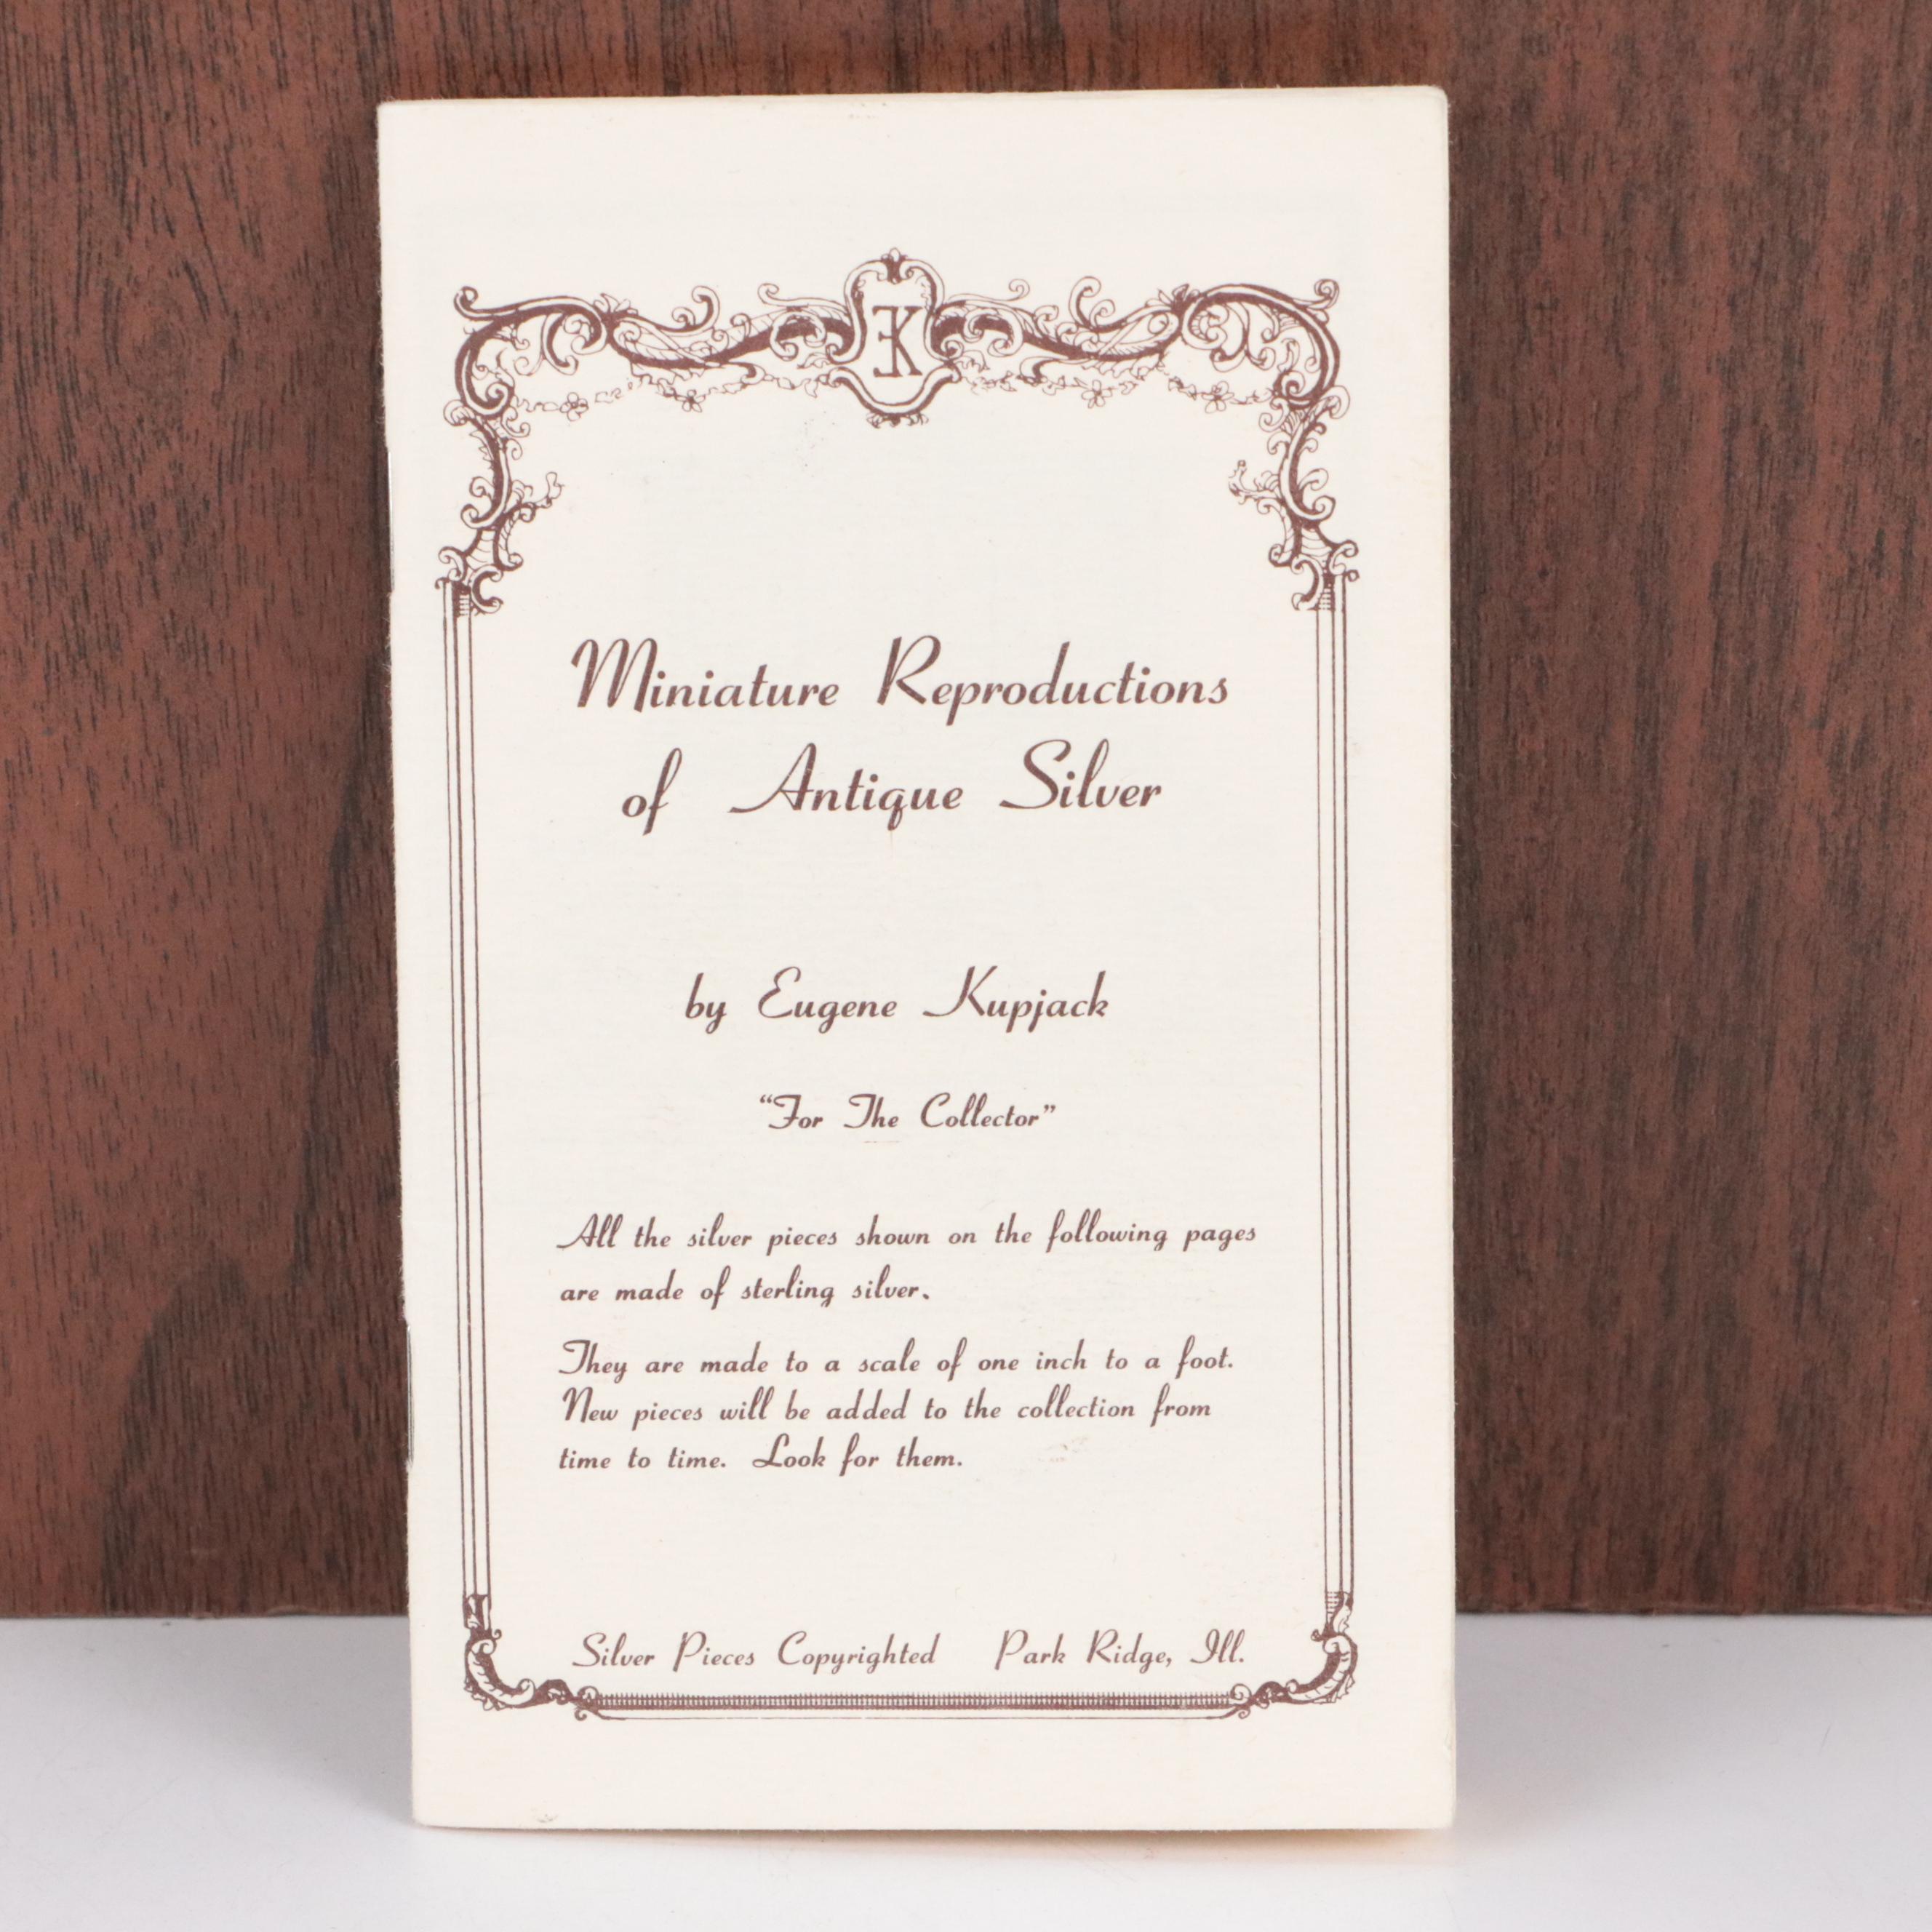 EK
Miniature Reproductions
of Antique Silver
by Eugene Kupjack
“For The Collector”
All the silver pieces shown on the following pages
are made of sterling silver.
They are made to a scale of one inch to a foot.
New pieces will be added to the collection from
time to time. Look for them.
Silver Pieces Copyrighted Park Ridge, Ill.